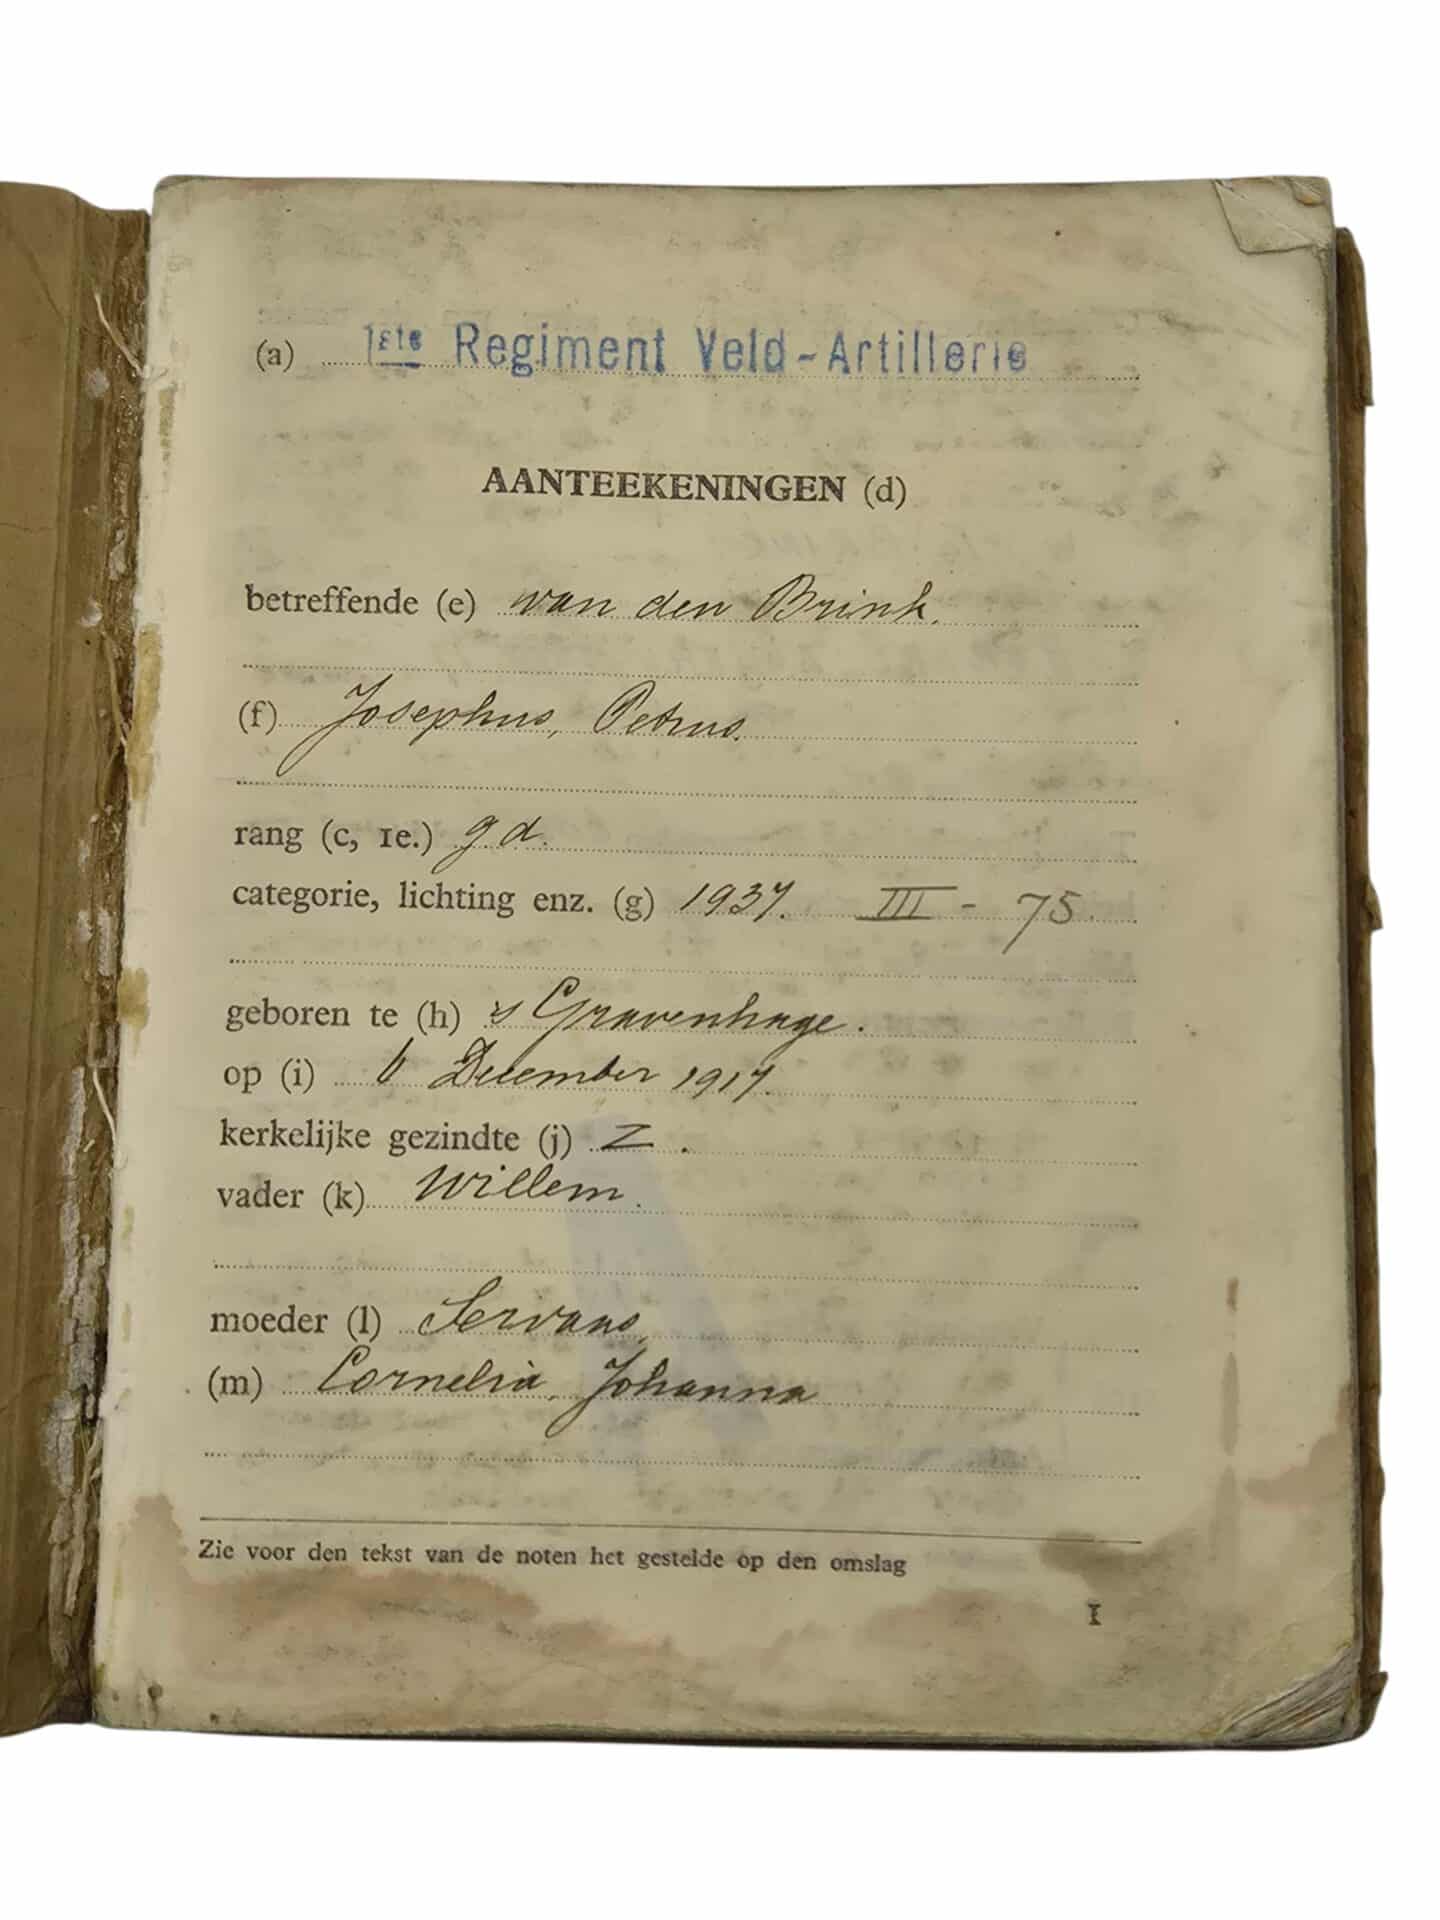 (a) 1ste Regiment Veld-Artillerie
AANTEEKENINGEN (d)
betreffende (e) van den Brink.
(f) Josephus, Petrus.
rang (c, 1e.) g d.
categorie, lichting enz. (g) 1937. III - 75.
geboren te (h) 's Gravenhage.
op (i) 6 December 1917.
kerkelijke gezindte (j) Z.
vader (k) Willem.
moeder (l) Servaas,
(m) Cornelia, Johanna
Zie voor den tekst van de noten het gestelde op den omslag
1